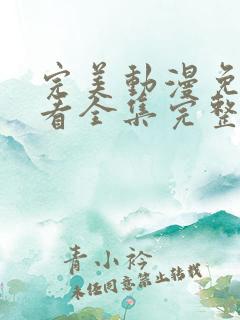 完美動漫免
看全集完整
青小衿
未经同意禁止转载